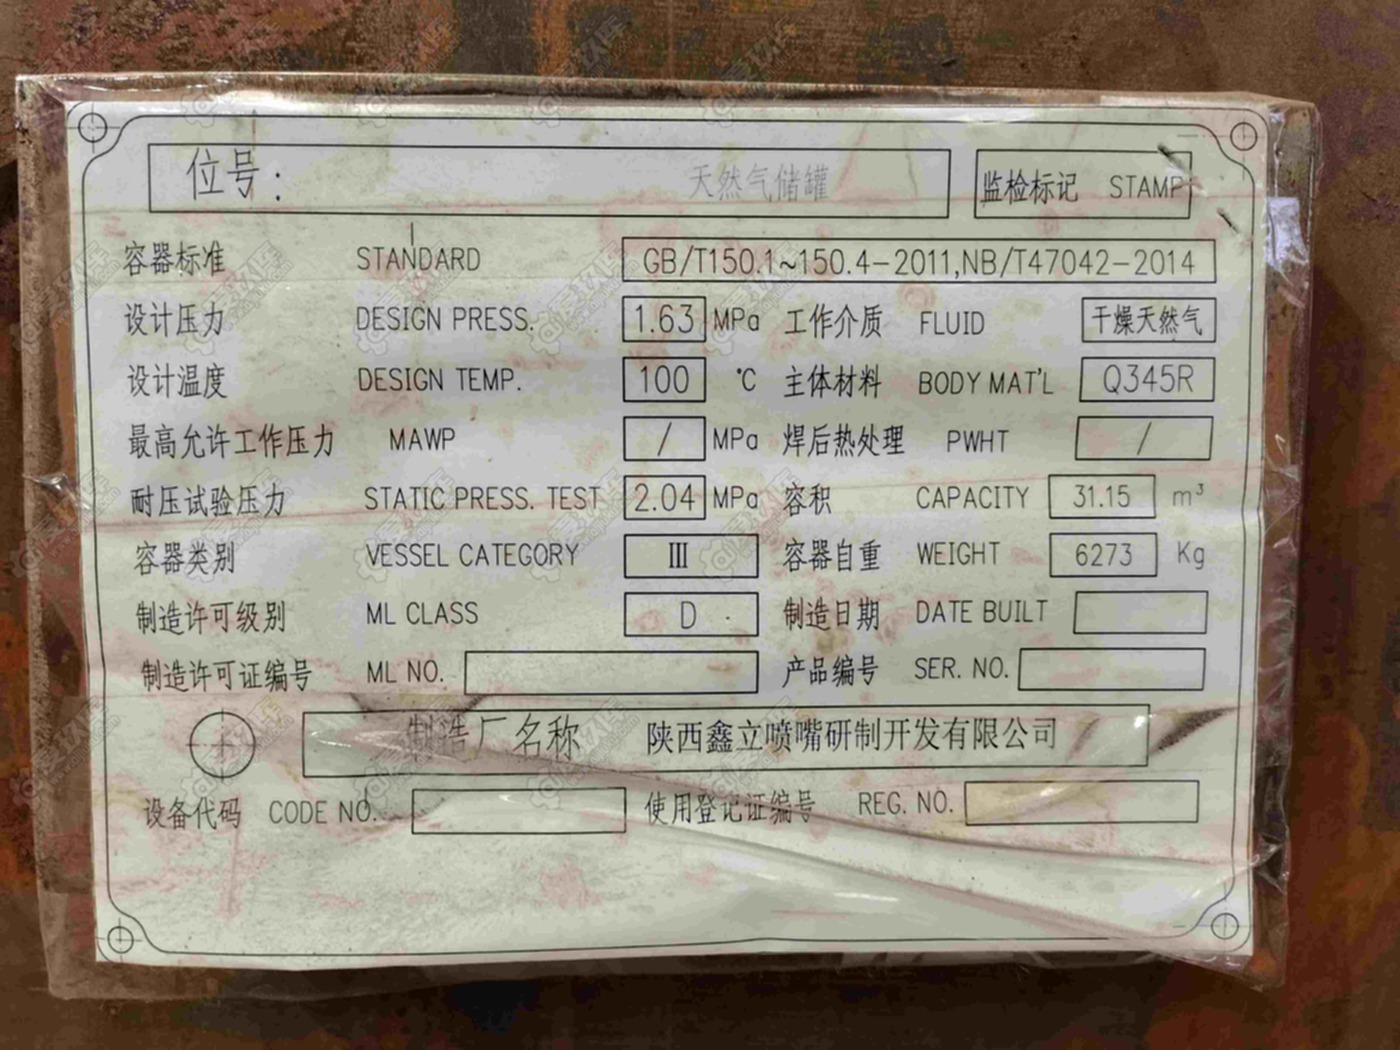 位号： 天然气储罐 监检标记 STAMP
容器标准 STANDARD GB/T150.1~150.4-2011,NB/T47042-2014
设计压力 DESIGN PRESS. 1.63 MPa 工作介质 FLUID 干燥天然气
设计温度 DESIGN TEMP. 100 ℃ 主体材料 BODY MAT'L Q345R
最高允许工作压力 MAWP / MPa 焊后热处理 PWHT /
耐压试验压力 STATIC PRESS. TEST 2.04 MPa 容积 CAPACITY 31.15 m³
容器类别 VESSEL CATEGORY Ⅲ 容器自重 WEIGHT 6273 Kg
制造许可级别 ML CLASS D 制造日期 DATE BUILT
制造许可证编号 ML NO. 产品编号 SER. NO.
制造厂名称 陕西鑫立喷嘴研制开发有限公司
设备代码 CODE NO. 使用登记证编号 REG. NO.